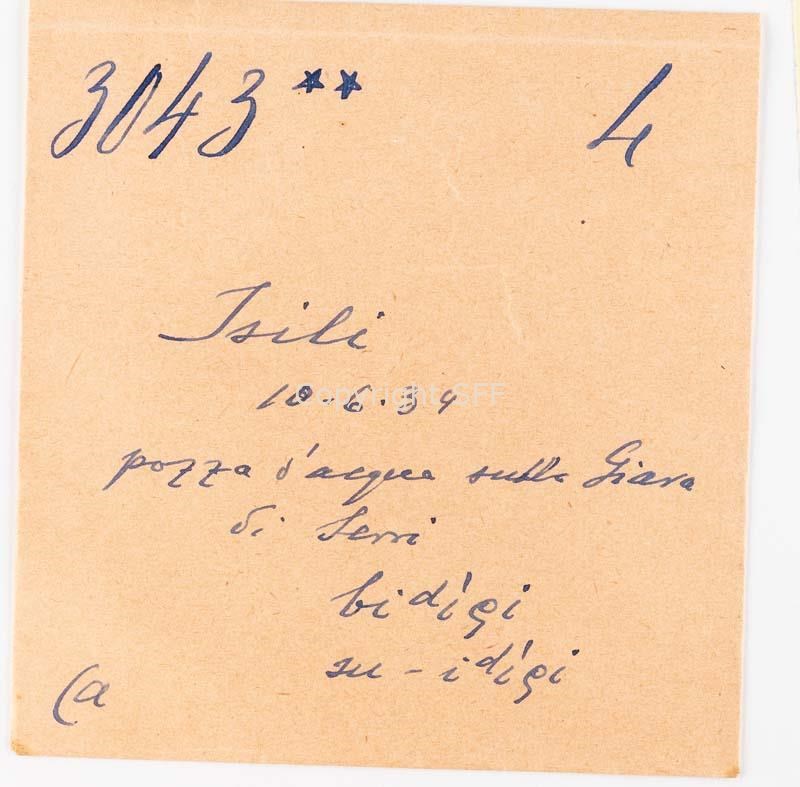 3043** 4
Isili
10-6-34
pozza d'acqua sulla Giara
di Serri
bidígi
su-idígi
(a
Copyright SFF